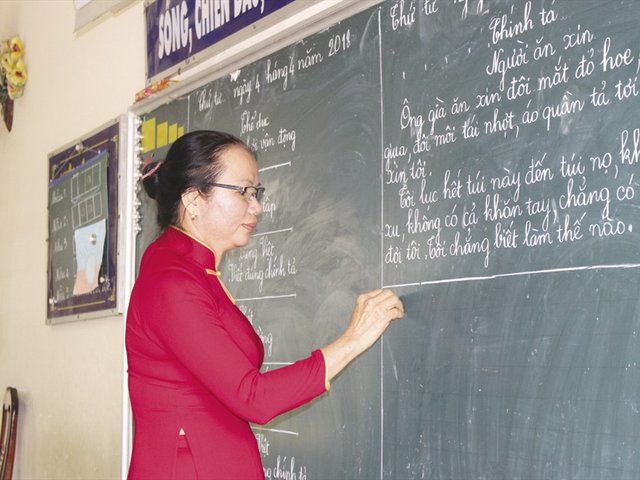 SỐNG, CHIẾN ĐẤU,
Thứ tư ngày 4 tháng 4 năm 2018
Thể dục
vận động
tập
Tiếng Việt
Việt đúng chính tả
Việt
chính tả
Thứ tư
Chính tả
Người ăn xin
Ông già ăn xin đôi mắt đỏ hoe,
qua, đôi môi tái nhợt, áo quần tả tơi
xin tôi.
Tôi lục hết túi này đến túi nọ, kh
xu, không có cả khăn tay, chẳng có
đợi tôi. Tôi chẳng biết làm thế nào.